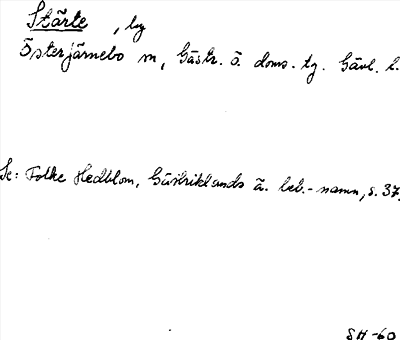 Stärte, by
Österjärnebo sn, Gästr. ö. doms. tg. Gävl. l.
Se: Folke Hedblom, Gästriklands ä. beb.-namn, s. 37,
SH -60